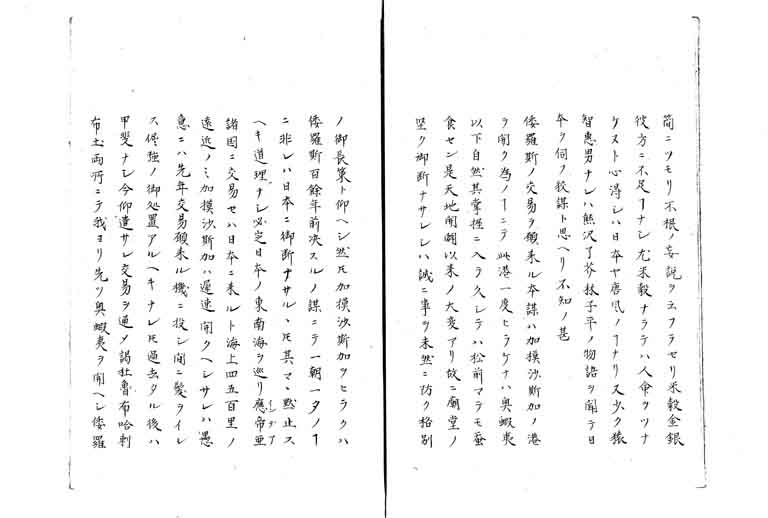 簡ニツモリ不根ノ妄説ヲ云フラセリ米穀金銀
彼方ニ不足ーナシ尤米穀ナラテハ人命ヲツナ
ケスト心得シハ日本ヤ唐風ノーナリス少ク猿
智恵男ナレハ熊沢了芥林子平ノ物語ヲ聞テ日
本ヲ伺フ狡謀ト思ヘリ不知ノ甚
倭羅斯ノ交易ヲ願来ル本謀ハ加摸沙斯加ノ港
ヲ開ク為ノーニテ此港一度ヒラケナハ奥蝦夷
以下自然其掌握ニ入ラ久シテハ松前マテモ蚕
食セン是天地開闢以来ノ大変アリ故ニ廟堂ノ
堅ク御断ナサレシハ誠ニ事ヲ未然ニ防ク格別
ノ御長策ト仰ヘシ然圧加摸沙斯加ヲヒラクハ
倭羅斯百餘年前决スルノ謀ニテ一朝一夕ノー
ニ非レハ日本ニ御断ナサルヽ圧其マヽ黙止ス
ヘキ道理ナシ必定日本ノ東南海ヲ巡リ應帝亜
インデア
諸国ニ交易セハ日本ニ来ルト海上四五百里ノ
遠近ノミ加摸沙斯加ハ遅速開クヘシサレハ愚
意ニハ先年交易願来ル機ニ投シ間ニ髪ヲイレ
ス倔強ノ御処置アルヘキナレ圧過去タル後ハ
甲斐ナシ今仰遣サレ交易ヲ通メ謁杜魯布哈剌
布土両所ニテ我ヨリ先ツ奥蝦夷ヲ開ヘシ倭羅